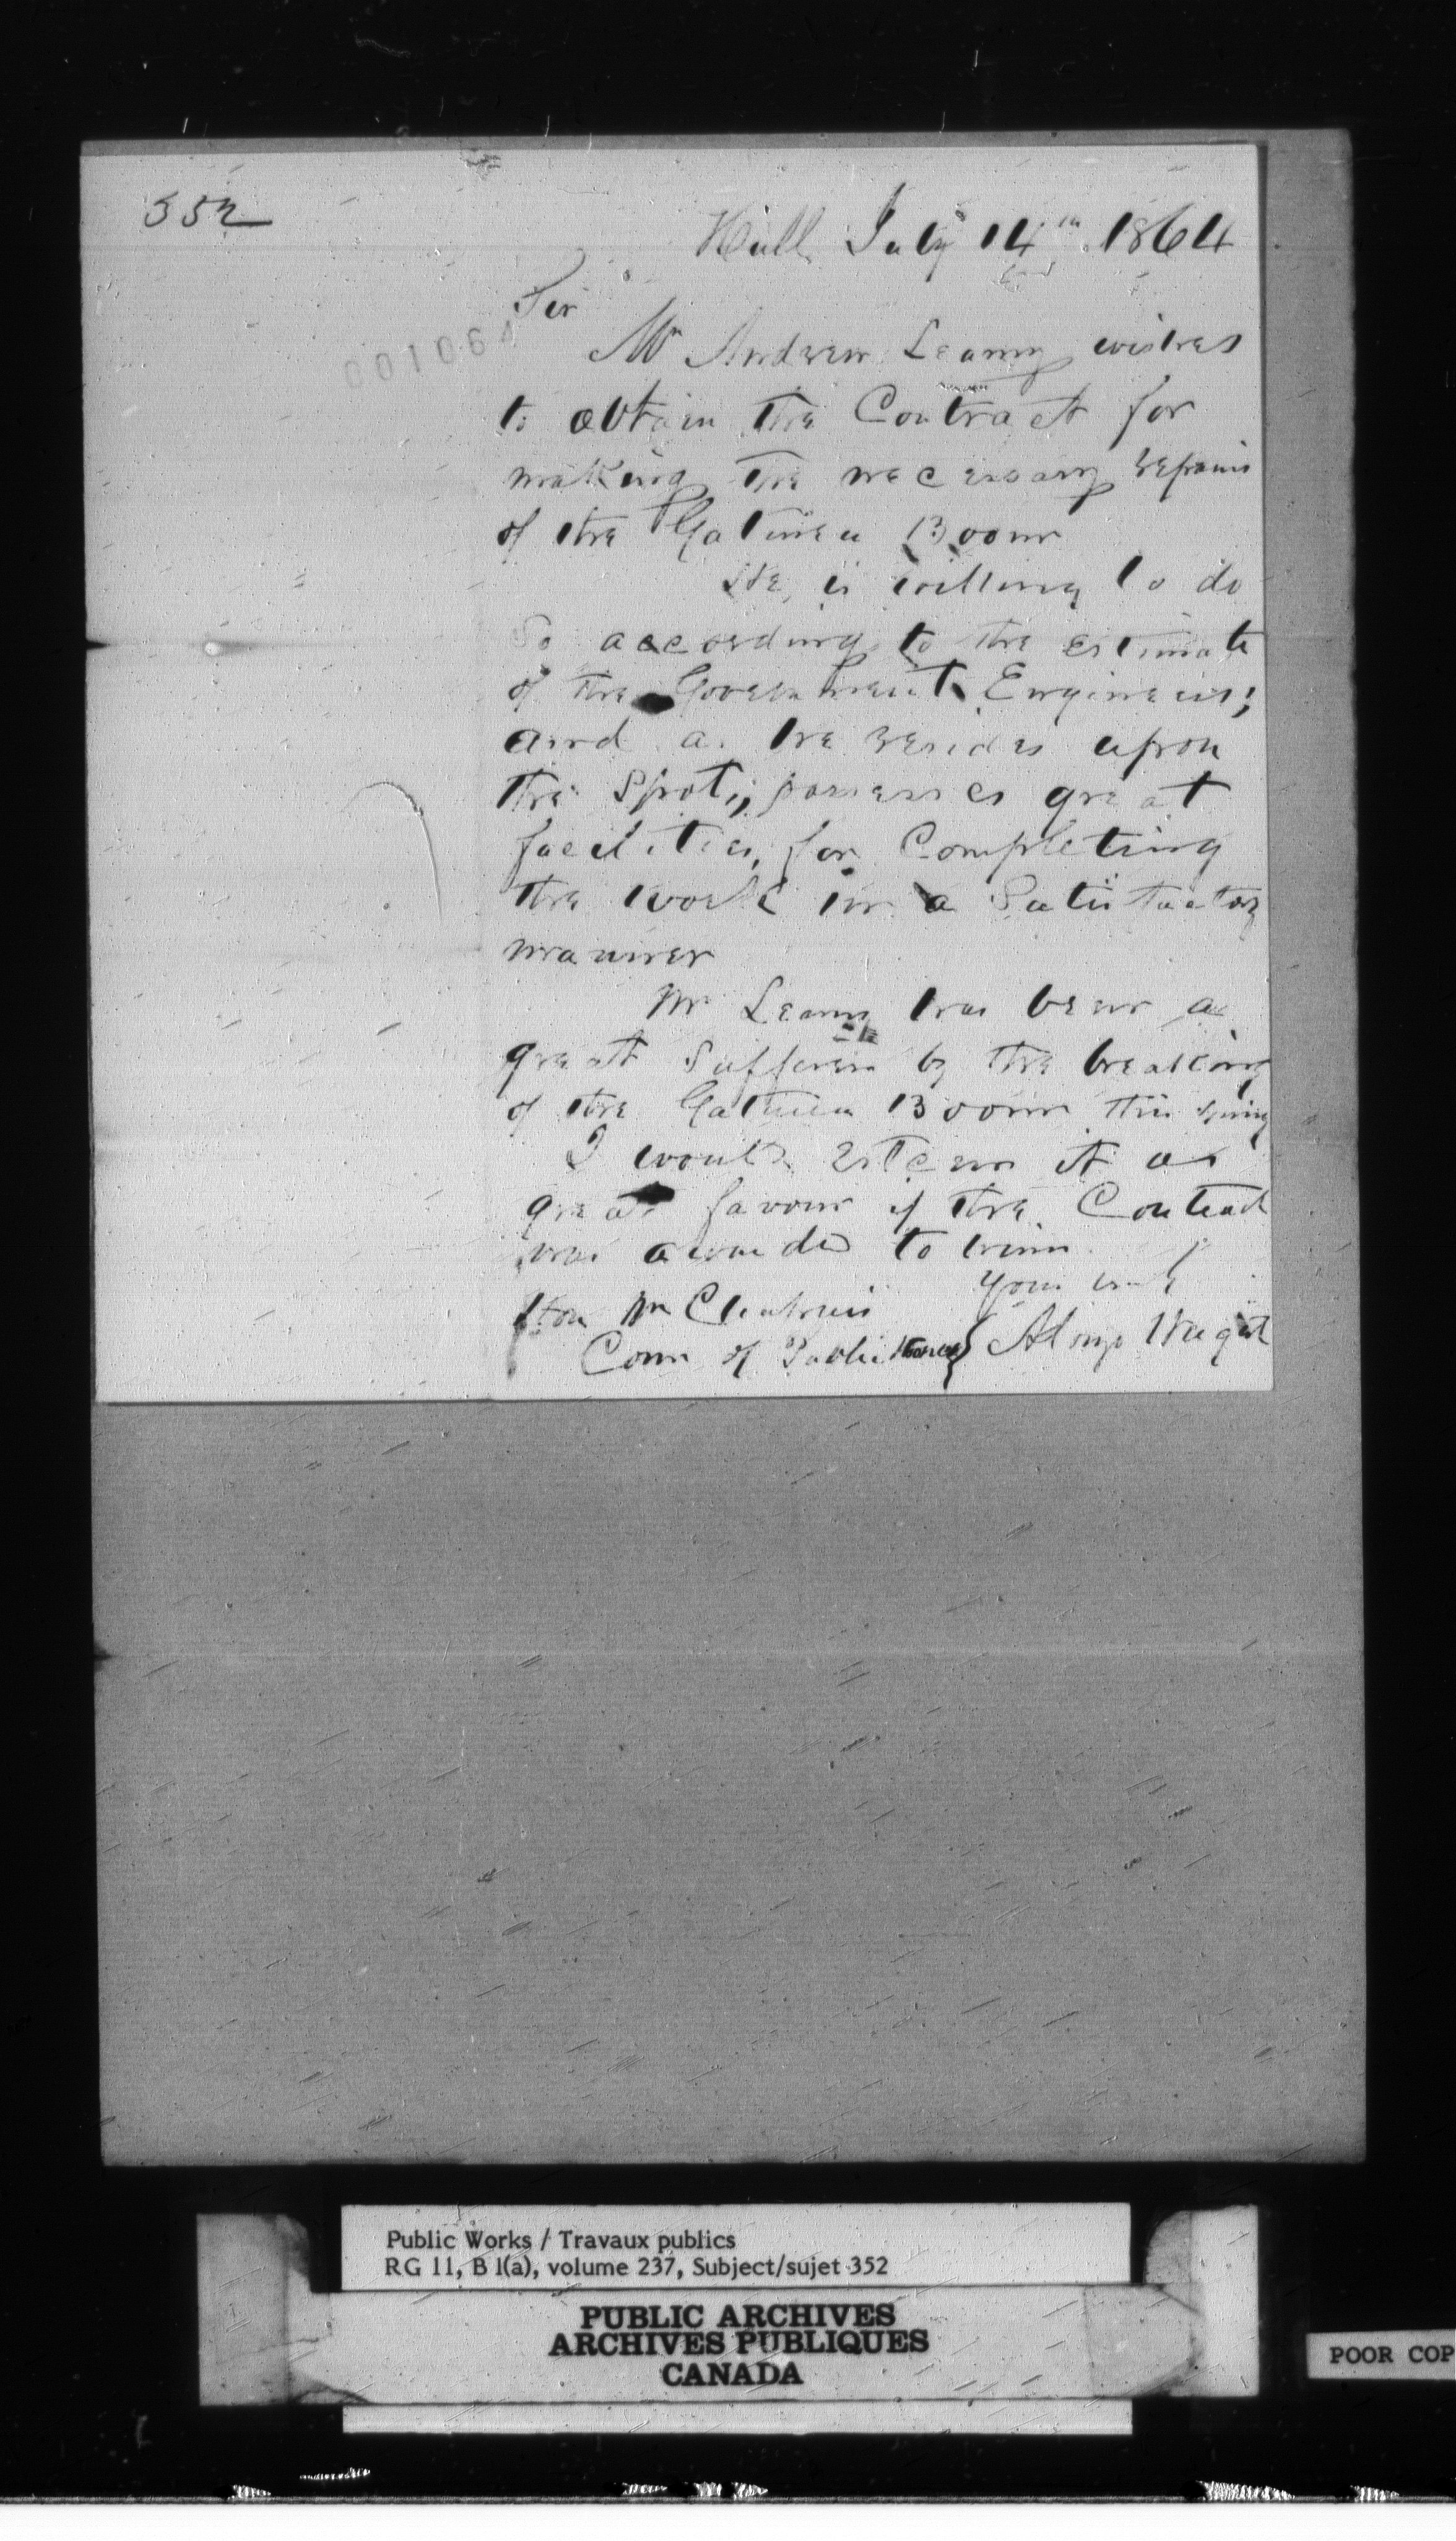 352
Hull July 14th 1864
001064
Sir
Mr Andrew Leamy wishes
to obtain the Contract for
making the necessary repairs
of the Gatineau Boom
He is willing to do
So according to the estimate
of the Government Engineers;
and as he resides upon
the Spot, possesses great
facilities, for Completing
the work in a Satisfactory
manner
Mr Leamy has been a
great Sufferer by the breaking
of the Gatineau Boom this Spring
I would esteem it as
great favour if the Contract
was awarded to him
Your
Hon Mr Chapais
Com of Public Works } Alonzo Wright
Public Works / Travaux publics
RG 11, B 1(a), volume 237, Subject/sujet 352
PUBLIC ARCHIVES
ARCHIVES PUBLIQUES
CANADA
POOR COP